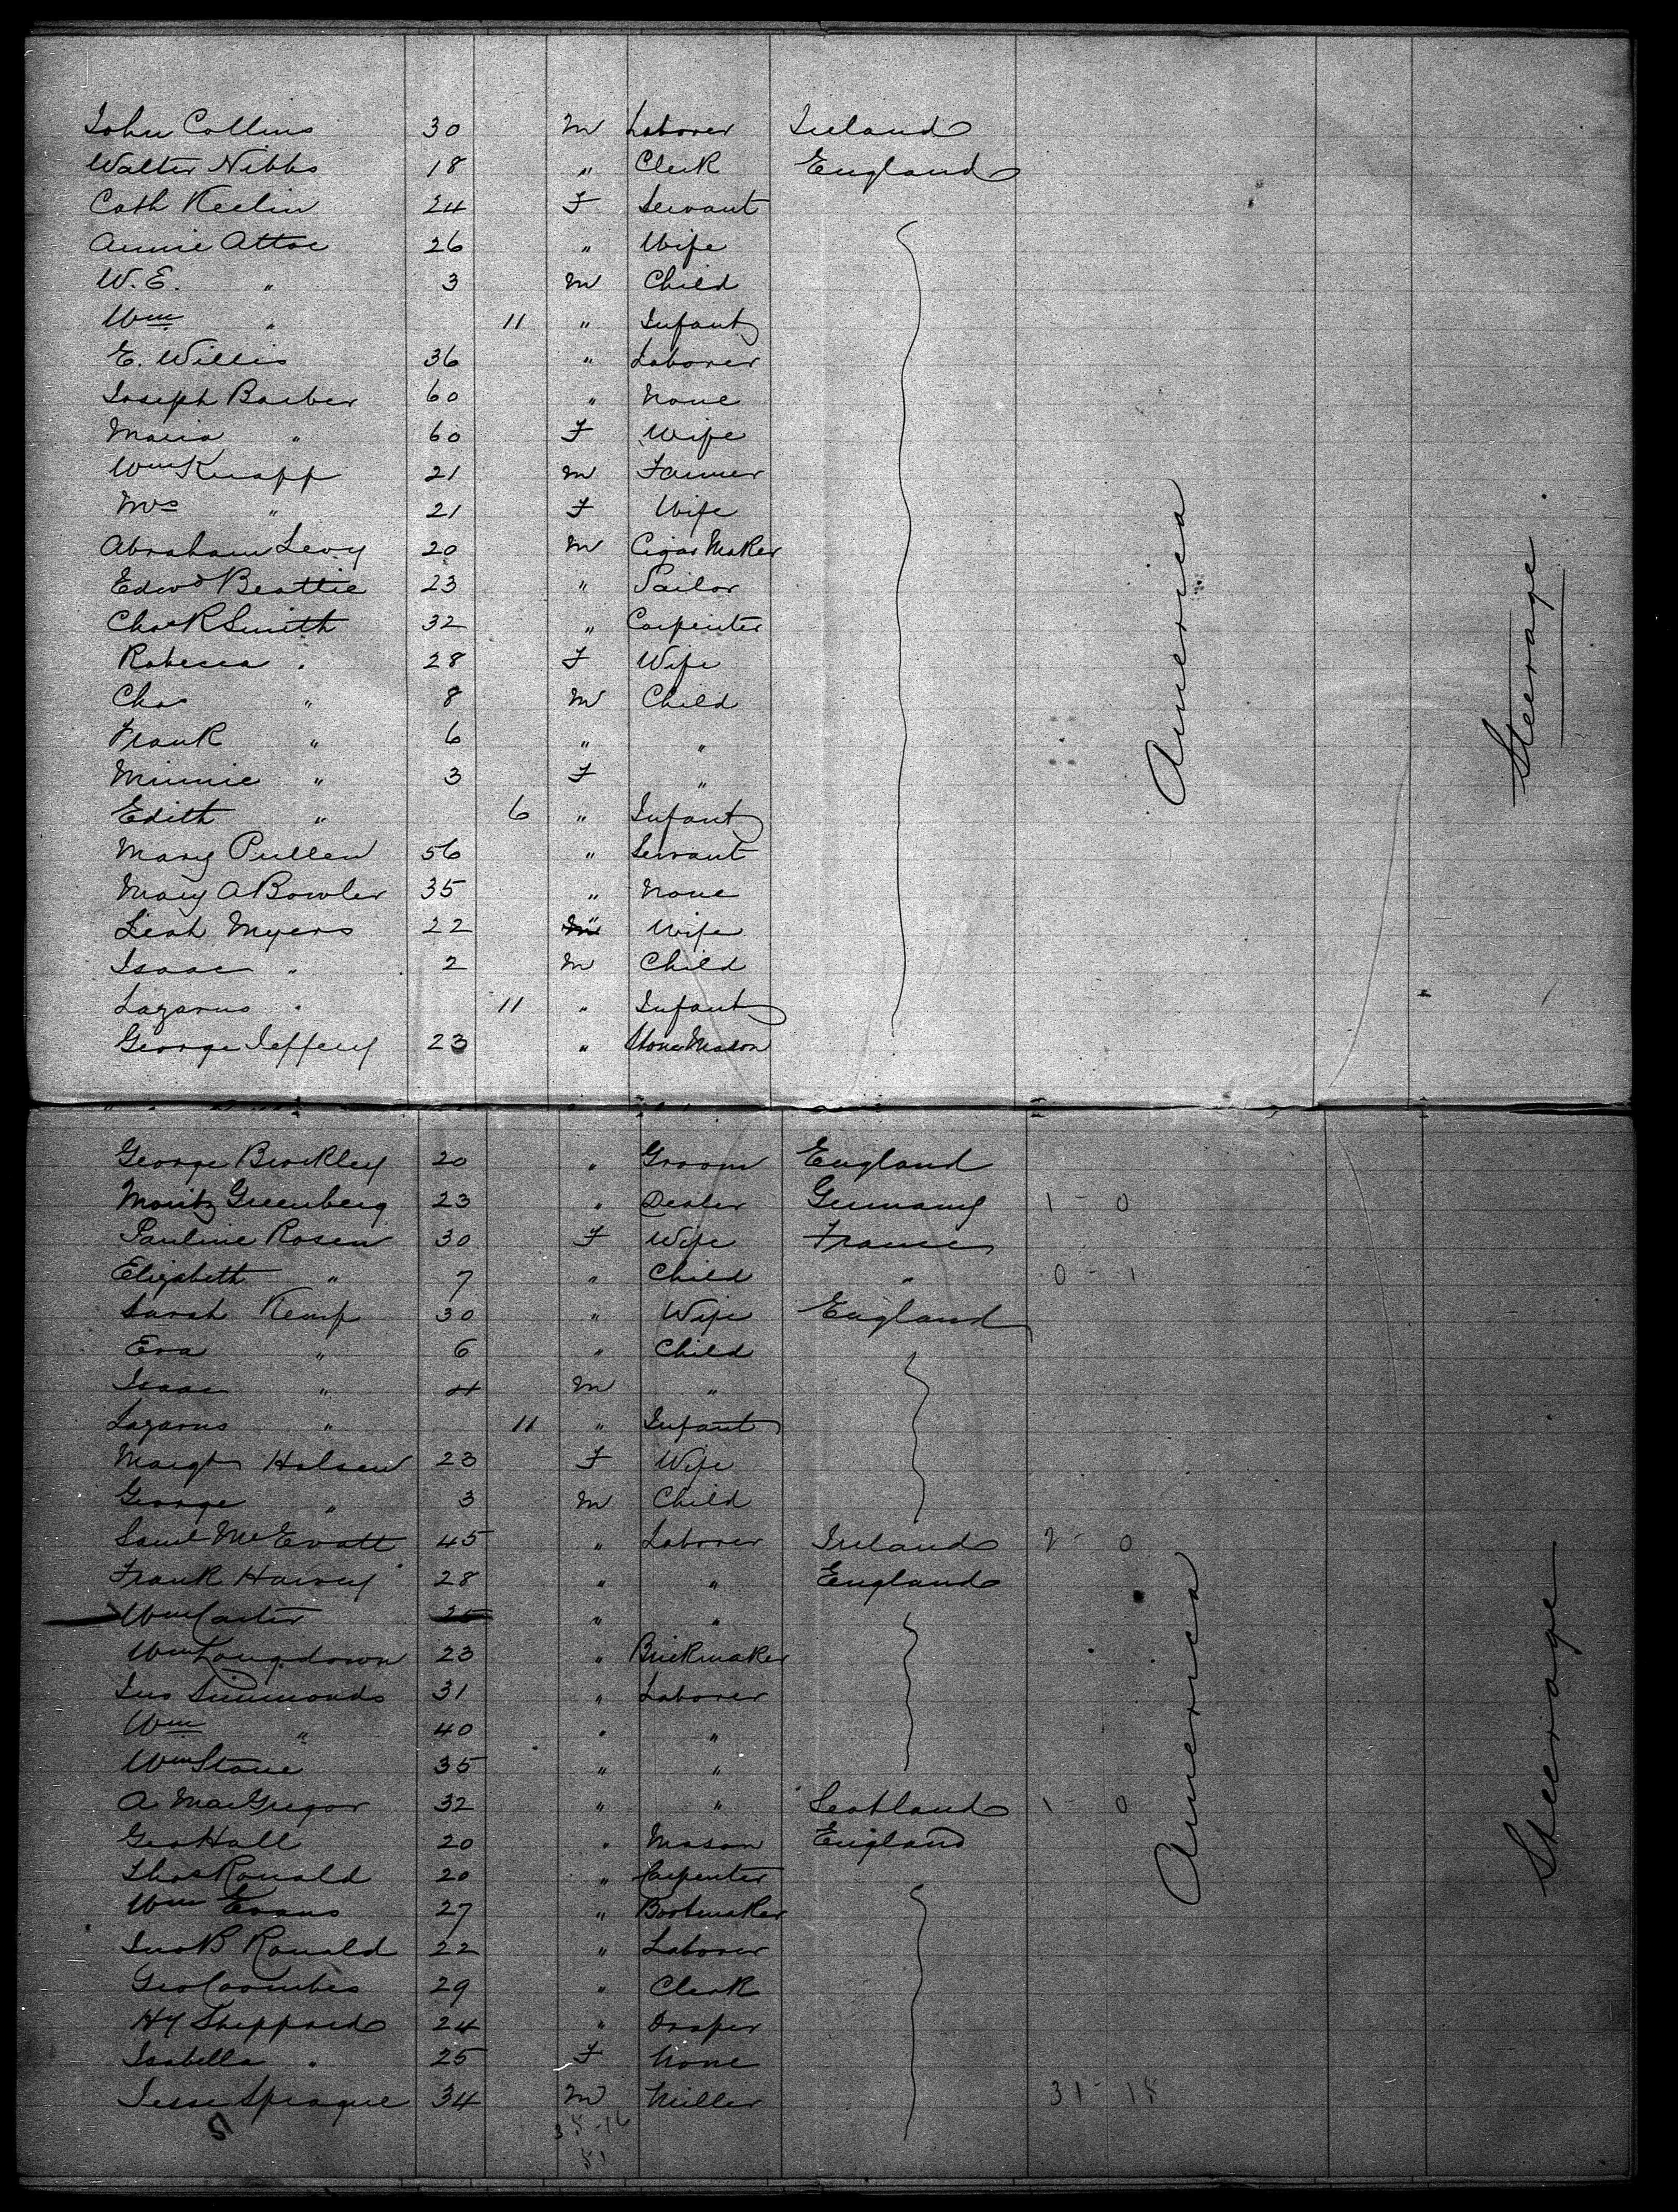 John Collins 30 M Laborer Ireland
Walter Nibbs 18 " Clerk England
Cath Keelin 24 F Servant
Annie Attoe 26 " Wife
W. E. " 3 M Child
Wm " 11 " Infant
E. Willis 36 " Laborer
Joseph Barber 60 " None
Maria " 60 F Wife
Wm Knapp 21 M Farmer
Mrs " 21 F Wife
Abraham Levy 20 M Cigar Maker
Edwd Beattie 23 " Sailor
Chas R Smith 32 " Carpenter
Rebecca " 28 F Wife
Chas " 8 M Child
Frank " 6 " "
Minnie " 3 F "
Edith " 6 " Infant
Mary Pullen 56 " Servant
Mary A Bowler 35 " None
Leah Myers 22 " Wife
Isaac " 2 M Child
Lazarus " 11 " Infant
George Jeffery 23 " Stone Mason
America
Steerage
George Brockley 20 " Groom England
Moritz Greenberg 23 " Dealer Germany 1 - 0
Pauline Rosen 30 F Wife France
Elizabeth " 7 " Child " 0 - 1
Sarah Kemp 30 " Wife England
Eva " 6 " Child
Isaac " 4 M "
Lazarus " 11 " Infant
Margt Halsen 23 F Wife
George " 3 M Child
Saml McEvatt 45 " Laborer Ireland 2 - 0
Frank Harvey 28 " " England
Wm Carter 25 " "
Wm Langdown 23 " Brickmaker
Jno Simmonds 31 " Laborer
Wm " 40 " "
Wm Stone 35 " "
A MacGregor 32 " " Scotland 1 - 0
Geo Hall 20 " Mason England
Thos Ronald 20 " Carpenter
Wm Evans 27 " Bootmaker
Jno B Ronald 22 " Laborer
Geo Coombes 29 " Clerk
Hy Sheppard 24 " Draper
Isabella " 25 F None
Jesse Sprague 34 M Miller 31 - 15
51
America
Steerage